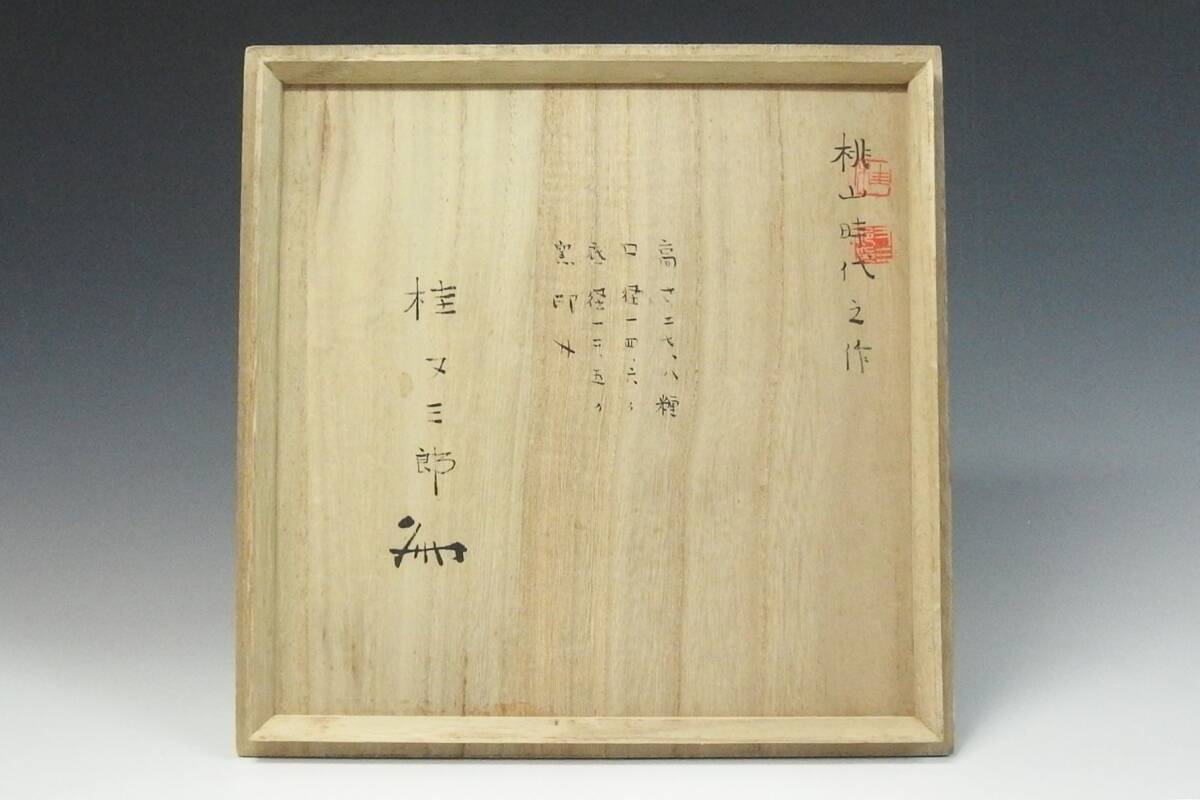 桃山時代之作
高サ二七、八糎
口径一四、六〃
底径一三、五〃
窯印
桂又三郎